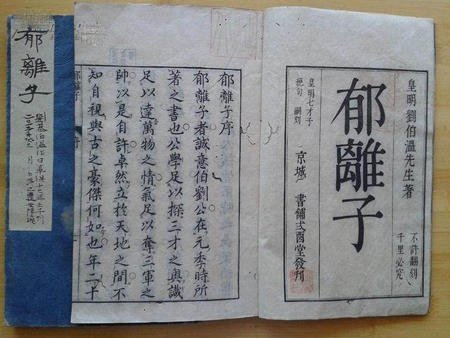 皇明劉伯溫先生著
郁離子
不許翻刻
千里必究
皇明七才子
京城 書鋪式酉堂發刋
郁離子序
郁離子者誠意伯劉公在元季時所
著之書也公學足以探三才之奧識
足以達萬物之情氣足以奪三軍之
帥以是自許卓然立於天地之間不
知自視與古之豪傑何如也年二十
郁離子